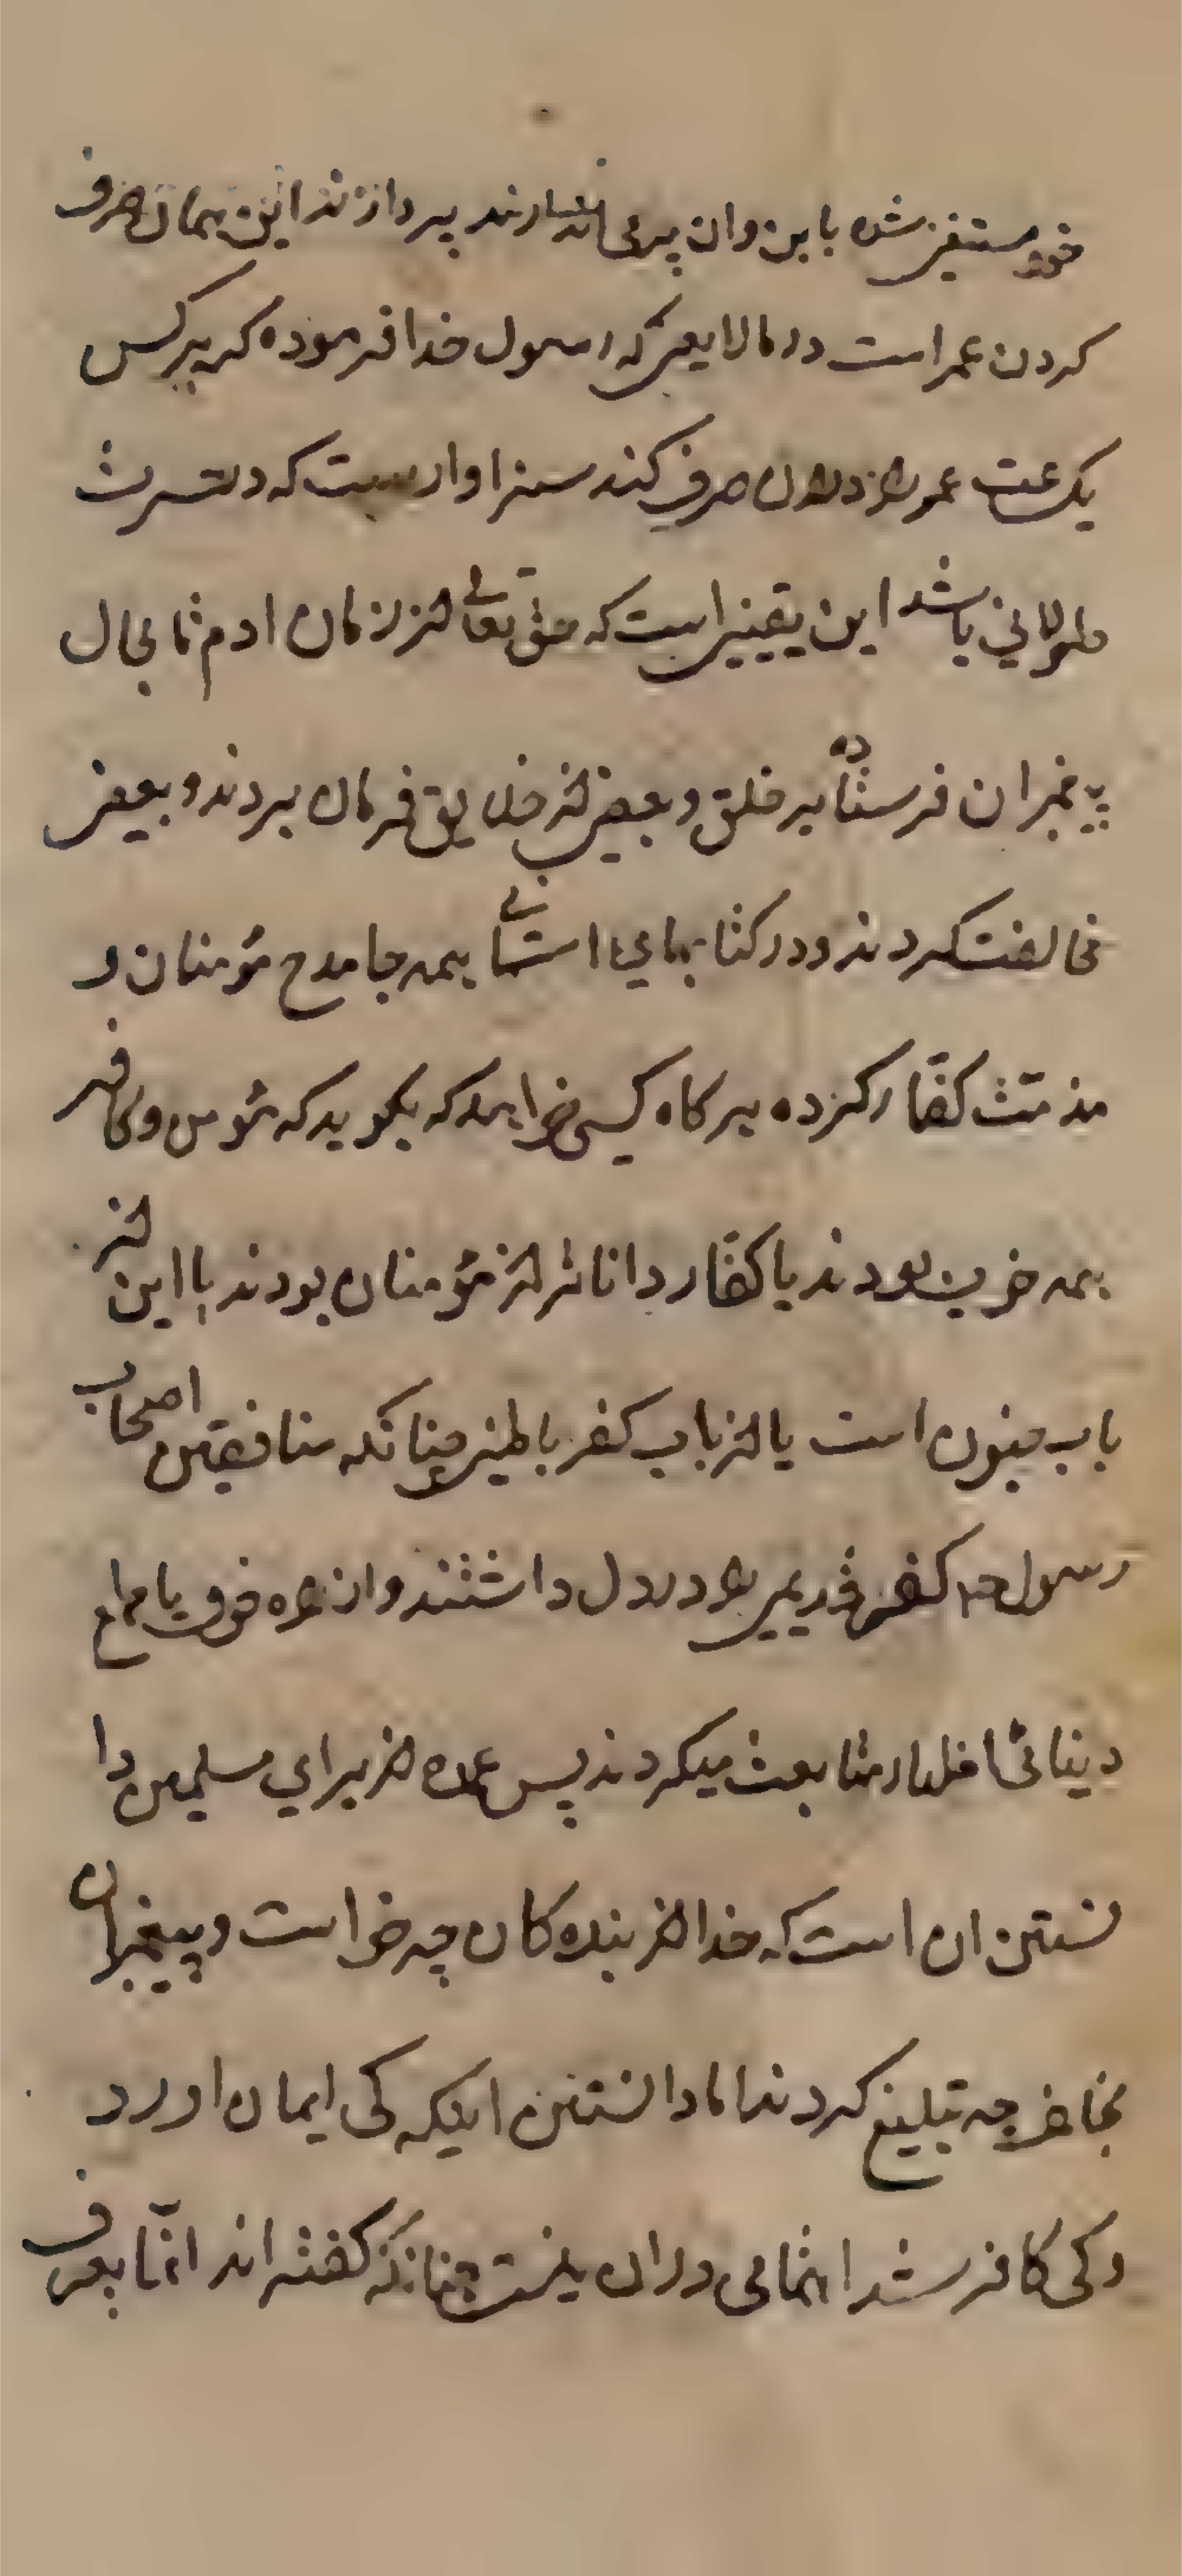 خود مستغنی شده باین وان پردازند این همان صرف
کردن عمر است در مالایعنی که رسول خدا فرموده که هر کس
یکساعت عمر صرف کند سزاوار است که حسرتش
طولانی باشد این یقینی است که حق تعالی از زمان ادم تا بحال
پیغمبران فرستاده بر خلق و بعضی از خلایق فرمان بردند و بعضی
مخالفت کردند و در کتابهای اسمانی همه جا مدح مؤمنان و
مذمت کفار کرده هر کاه کسی خواهد که بکوید که مؤمن و کافر
همه خوب بودند یا کفار داناتر از مؤمنان بودند یا این از
باب جنون است یا از باب کفر باطنی چنانکه منافقین اصحاب
رسول کفر قدیمی در دل داشتند و از خوف یا طمع
دینار متابعت میکردند پس عمده از برای مسلمین دا
نستن ان است که خدا از بنده کان چه خواست و پیغمبران
بما چه تبلیغ کردند اما دانستن اینکه کی ایمان اورد
و کی کافر شد اهتمامی در ان نیست چنانکه کفته اند انما یعرف